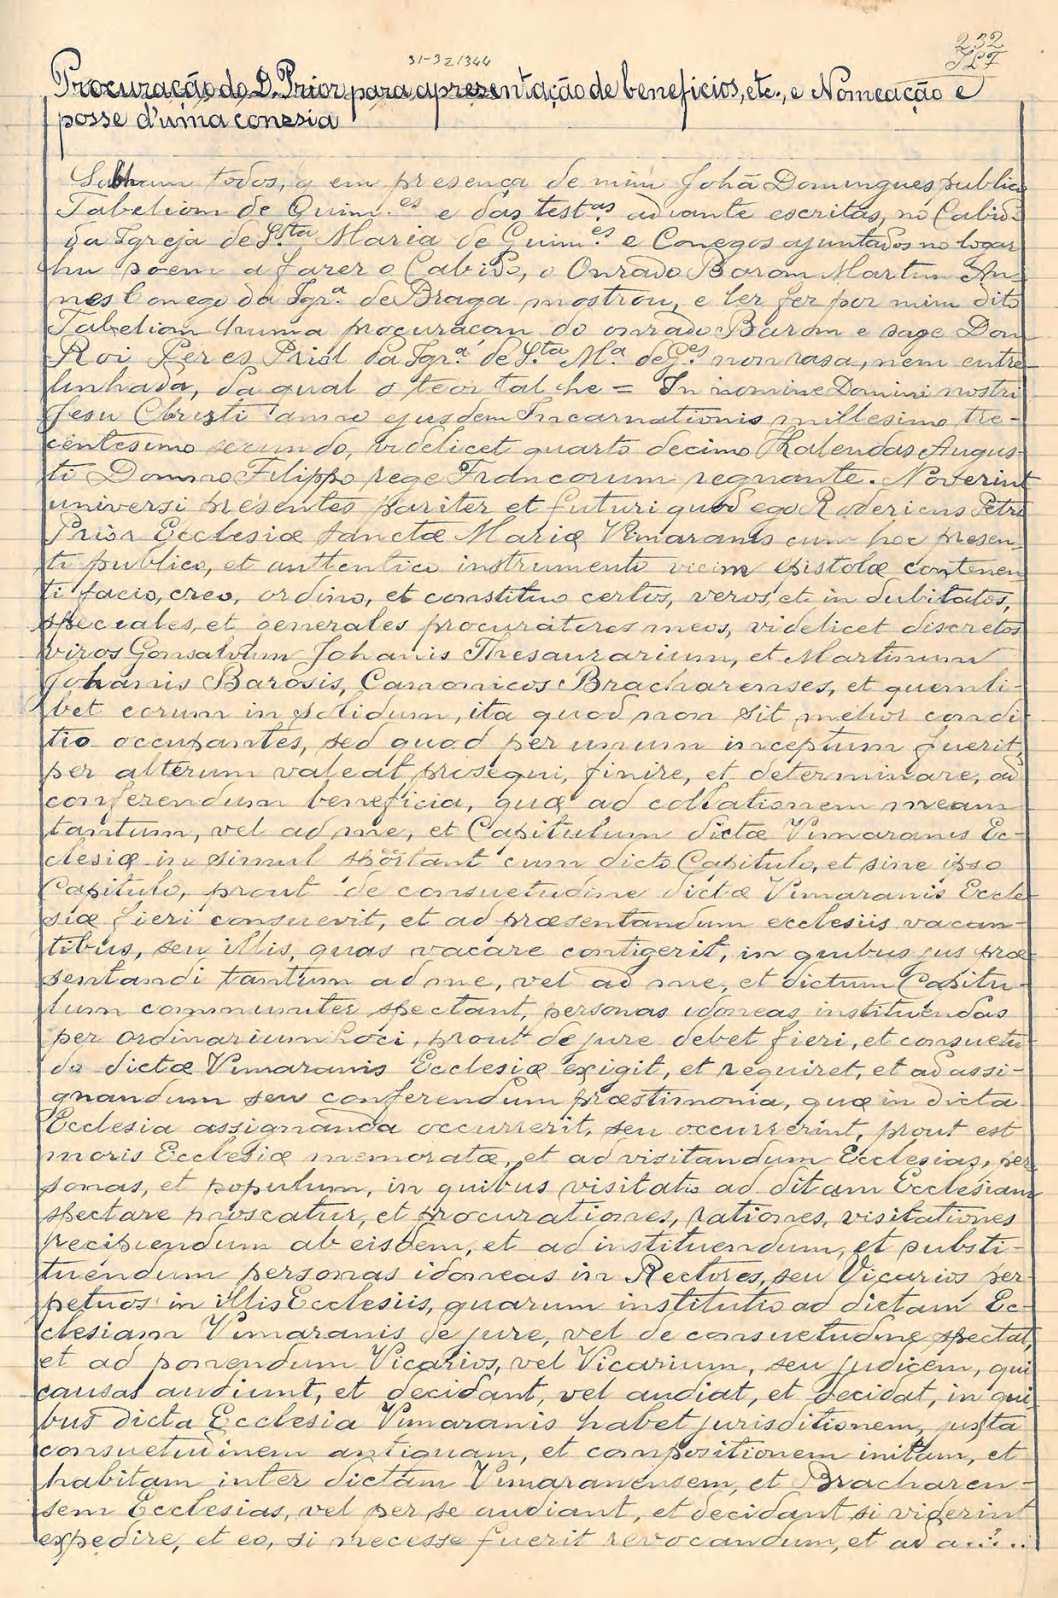 232
31-3-21344
Procuração do D. Prior para apresentação de beneficios, etc., e Nomeação e
posse d'uma conesia
Sabham todos, q em presença de mim Johã Domingues publico
Tabeliom de Guim.es e das test.as adiante escritas, no Cabido
da Igreja de S.ta Maria de Guim.es e Conegos ajuntados no logar
hu soem a fazer o Cabido, o Onrado Barom Martim An-
nes Conego da Igr.a de Braga mostrou, e ler fez por mim dito
Tabeliom huma procuraçom do onrado Barom e sage Dom
Roi Peres Priol da Igr.a de S.ta M.a de G.es non rasa, nem entre-
linhada, da qual o teor tal he = In nomine Domini nostri
Jesu Christi anno ejusdem Incarnationis millesimo tre-
centesimo secundo, videlicet quarto decimo Kalendas Augus-
ti Domno Filippo rege Francorum regnante. Noverint
universi presentes pariter et futuri quod ego Rodericus Petri
Prior Ecclesiæ sanctæ Mariæ Vimaranis cum hoc presen-
ti publico, et authentico instrumento vicem epistolæ continen-
ti facio, creo, ordino, et constituo certos, veros, et in dubitatos,
speciales, et generales procuratores meos, videlicet discretos
viros Gonsalvum Johanis Thesaurarium, et Martinum
Johanis Barosis, Canonicos Bracharenses, et quemli-
bet eorum in solidum, ita quod non sit melior condi-
tio occupantes, sed quod per unum inceptum fuerit,
per alterum valeat prosequi, finire, et determinare, ad
conferendum beneficia, quæ ad collationem meam
tantum, vel ad me, et Capitulum dictæ Vimaranis Ec-
clesiæ in simul spectant cum dicto Capitulo, et sine ipso
Capitulo, prout de consuetudine dictæ Vimaranis Eccle-
siæ fieri consuevit, et ad præsentandum ecclesiis vacan-
tibus, seu illis, quas vacare contigerit, in quibus jus præ-
sentandi tantum ad me, vel ad me, et dictum Capitu-
lum communiter spectant, personas idoneas instituendas
per ordinarium loci, prout de jure debet fieri, et consuetu-
do dictæ Vimaranis Ecclesiæ exigit, et requiret, et ad assi-
gnandum seu conferendum præstimonia, quæ in dicta
Ecclesia assignanda occurrerit, seu occurrerint, prout est
moris Ecclesiæ memoratæ, et ad visitandum Ecclesias, per-
sonas, et populum, in quibus visitatio ad ditam Ecclesiam
spectare noscatur, et procurationes, rationes, visitationes
recipiendum ab eisdem, et ad instituendum, et substi-
tuendum personas idoneas in Rectores, seu Vicarios per-
petuos in illis Ecclesiis, quarum institutio ad dictam Ec-
clesiam Vimaranis de jure, vel de consuetudine spectat,
et ad ponendum Vicarios, vel Vicarium, seu judicem, qui
causas audiunt, et decidant, vel audiat, et decidat, in qui-
bus dicta Ecclesia Vimaranis habet jurisditionem, juxta
consuetudinem antiquam, et compositionem initam, et
habitam inter dictam Vimaranensem, et Bracharen-
sem Ecclesias, vel per se audiant, et decidant si viderint
expedire, et eo, si necesse fuerit revocandum, et ad a..?..